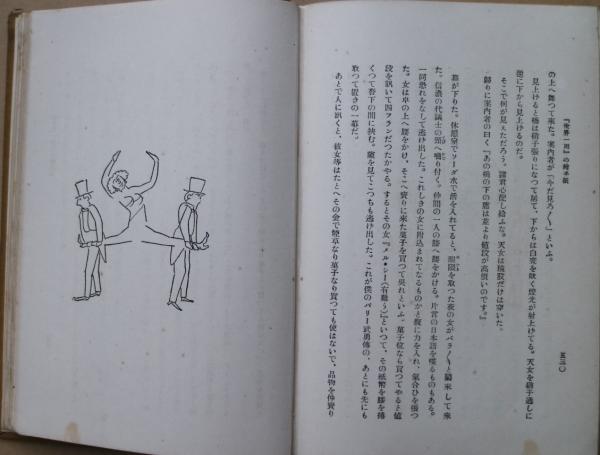 『世界一周』の繪手紙
五三〇
の上へ舞つて來た。案内者が「今だ見ろ〳〵」といふ。
見上げると橋は硝子張りになつて居て、下からは白聖を吹く燈光が射上げてる。天女を硝子通しに
逆に下から見上げるのだ。
そこで何が見えただろう。諸君心配し給ふな。天女は猿股だけは穿いた。
歸りに案内者の曰く『あの橋の下の席は並より値段が高價いのです。』
幕が下りた。休憩室でソーダ水で渇を入れてると、胸間を取つた夜の女がバラ〳〵と襲来して来
た。信濃の代議士の頸へ嚙り付く。仲間の一人の膝へ腰をかける。片言の日本語を喋るものもある。
一同恐れをなして逃げ出した。これしきの女に附込まれてなるものかと腹に力を入れ、氣合ひを張つ
た。女は卓の上へ腰をかけ、そこへ賣りに來た菓子を買つて吳れといふ。菓子位なら買つてやると値
段を訊いて四フランだつたかやる。するとその女『メルシー(有難う)』といつて、その紙幣を膝を捲
くつて沓下の間に挾む。臍を見てこつちも逃げ出した。これが僕のパリー武勇傳の、あとにも先にも
取つて置きの一幕だ。
あとで人に訊くと、彼女等はたとへその金で煙草なり菓子なり買つても使はないで、品物を仲賣り